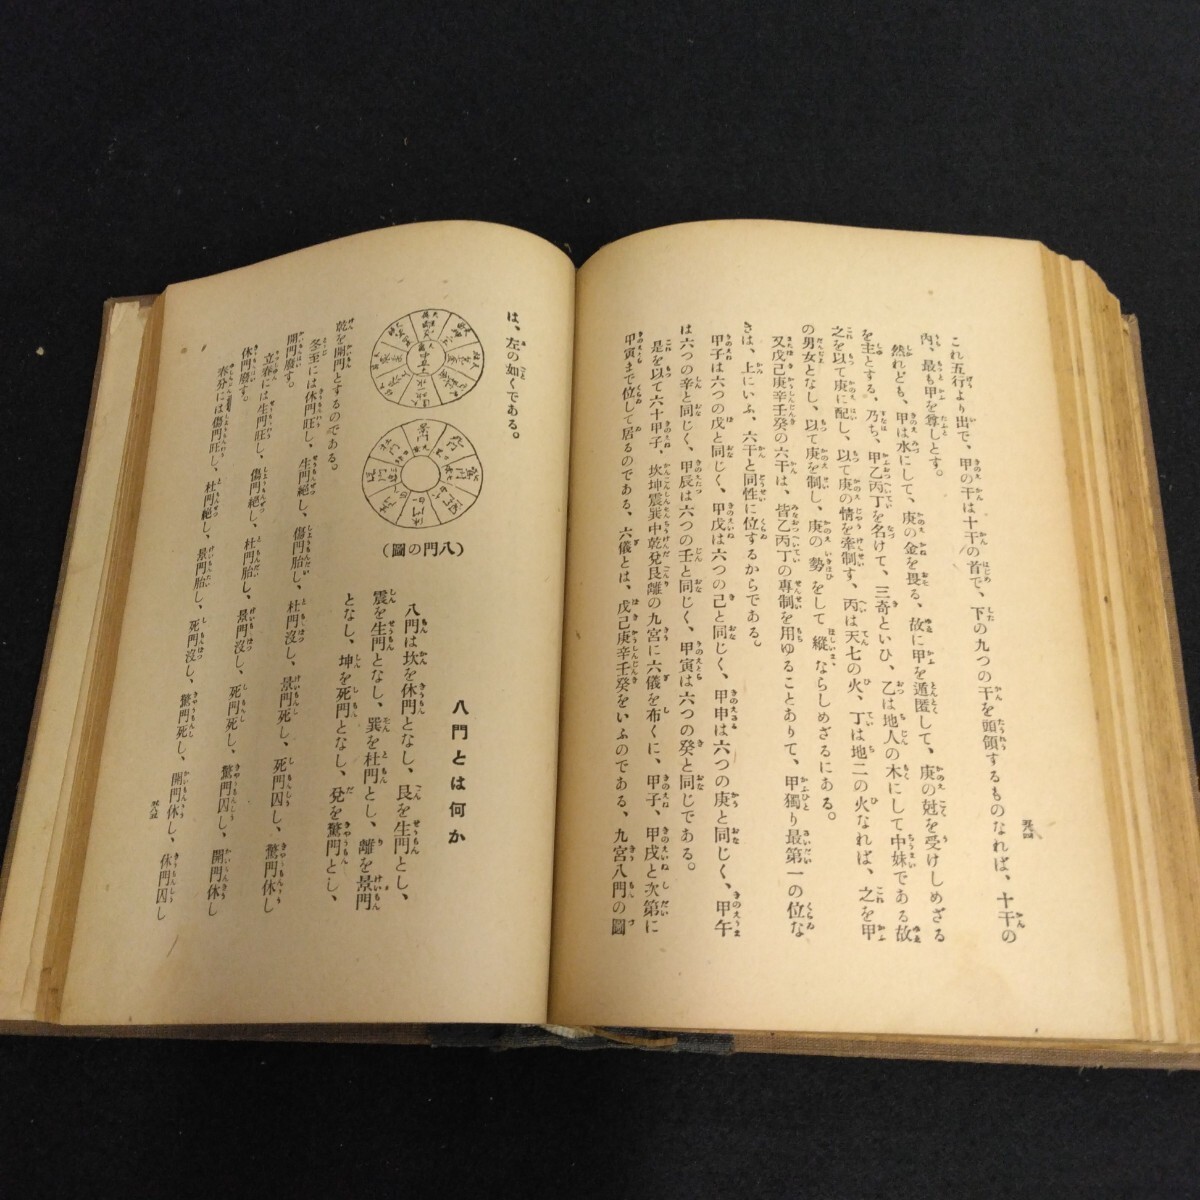 これ五行より出で、甲の干は十干の首で、下の九つの干を頭領するものなれば、十干の
內、最も甲を尊しとす。
然れども、甲は水にして、庚の金を畏る、故に甲を遁匿して、庚の尅を受けしめざる
を主とする、乃ち、甲乙丙丁を名けて、三奇といひ、乙は地人の木にして中妹である故
之を以て庚に配し、以て庚の情を牽制す、丙は天七の火、丁は地二の火なれば、之を甲
の男女となし、以て庚を制し、庚の勢をして縱ならしめざるにある。
又戊己庚辛壬癸の六干は、皆乙丙丁の專制を用ゆることありて、甲獨り最第一の位な
きは、上にいふ、六干と同性に位するからである。
甲子は六つの戊と同じく、甲戌は六つの己と同じく、甲申は六つの庚と同じく、甲午
は六つの辛と同じく、甲辰は六つの壬と同じく、甲寅は六つの癸と同じである。
是を以て六十甲子、坎坤震巽中乾兌艮離の九宮に六儀を布くに、甲子、甲戌と次第に
甲寅まで位して居るのである、六儀とは、戊己庚辛壬癸をいふのである、九宮八門の圖
は、左の如くである。
(八門の圖)
八門とは何か
八門は坎を休門となし、艮を生門とし、
震を生門となし、巽を杜門とし、離を景門
となし、坤を死門となし、兌を驚門とし、
乾を開門とするのである。
冬至には休門旺し、生門絕し、傷門胎し、杜門沒し、景門死し、死門囚し、驚門休し
開門廢す。
立春には生門旺し、傷門絕し、杜門胎し、景門沒し、死門死し、驚門囚し、開門休し
休門廢す。
春分には傷門旺し、杜門絕し、景門胎し、死門沒し、驚門死し、開門休し、休門囚し